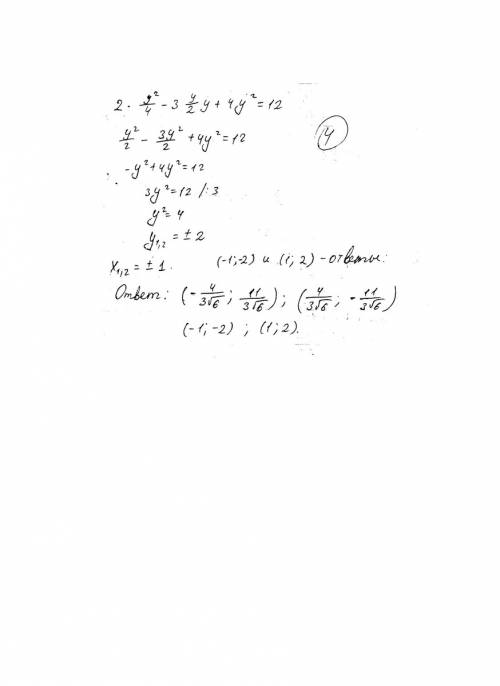 2 · y²/4 - 3 y/2 y + 4y² = 12
y²/2 - 3y²/2 + 4y² = 12
4
-y² + 4y² = 12
3y² = 12 /: 3
y² = 4
y₁,₂ = ± 2
x₁,₂ = ± 1. (-1;-2) и (1; 2) - ответы.
Ответ: (- 4/3√6 ; 11/3√6) ; (4/3√6 ; - 11/3√6)
(-1; -2) ; (1; 2).